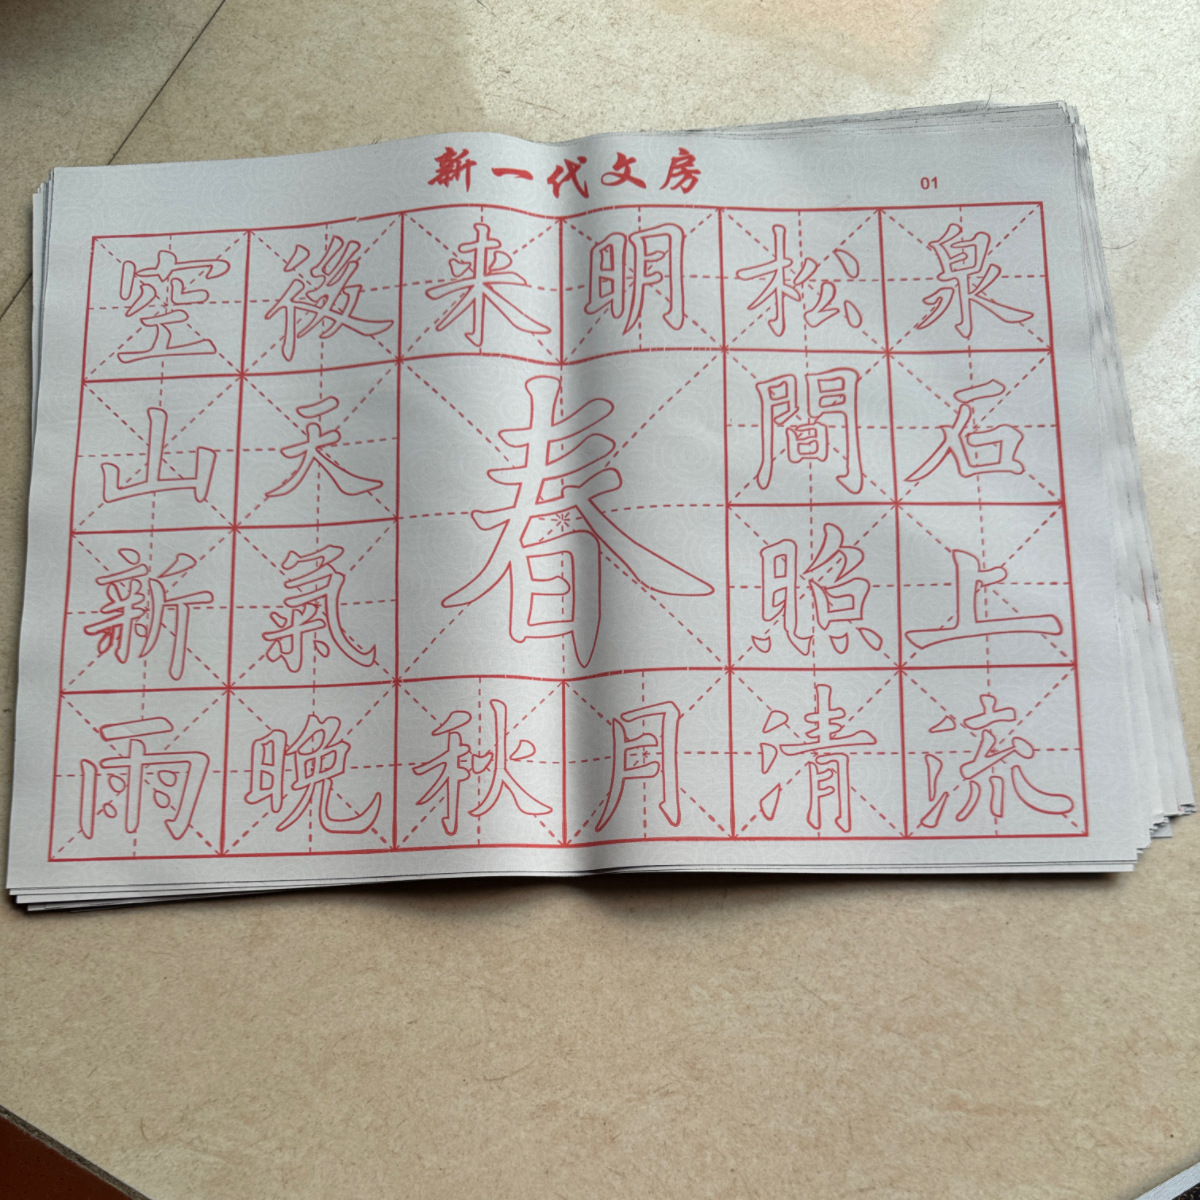 新一代文房
01
空後来明松泉
山天春間石
新氣照上
雨晚秋月清流